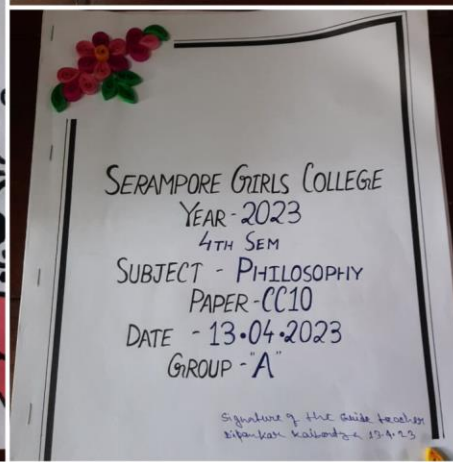 SERAMPORE GIRLS COLLEGE
YEAR-2023
4TH SEM
SUBJECT - PHILOSOPHY
PAPER-CC10
DATE - 13.04.2023
GROUP-"A"
Signature of the Guide teacher
13.4.23